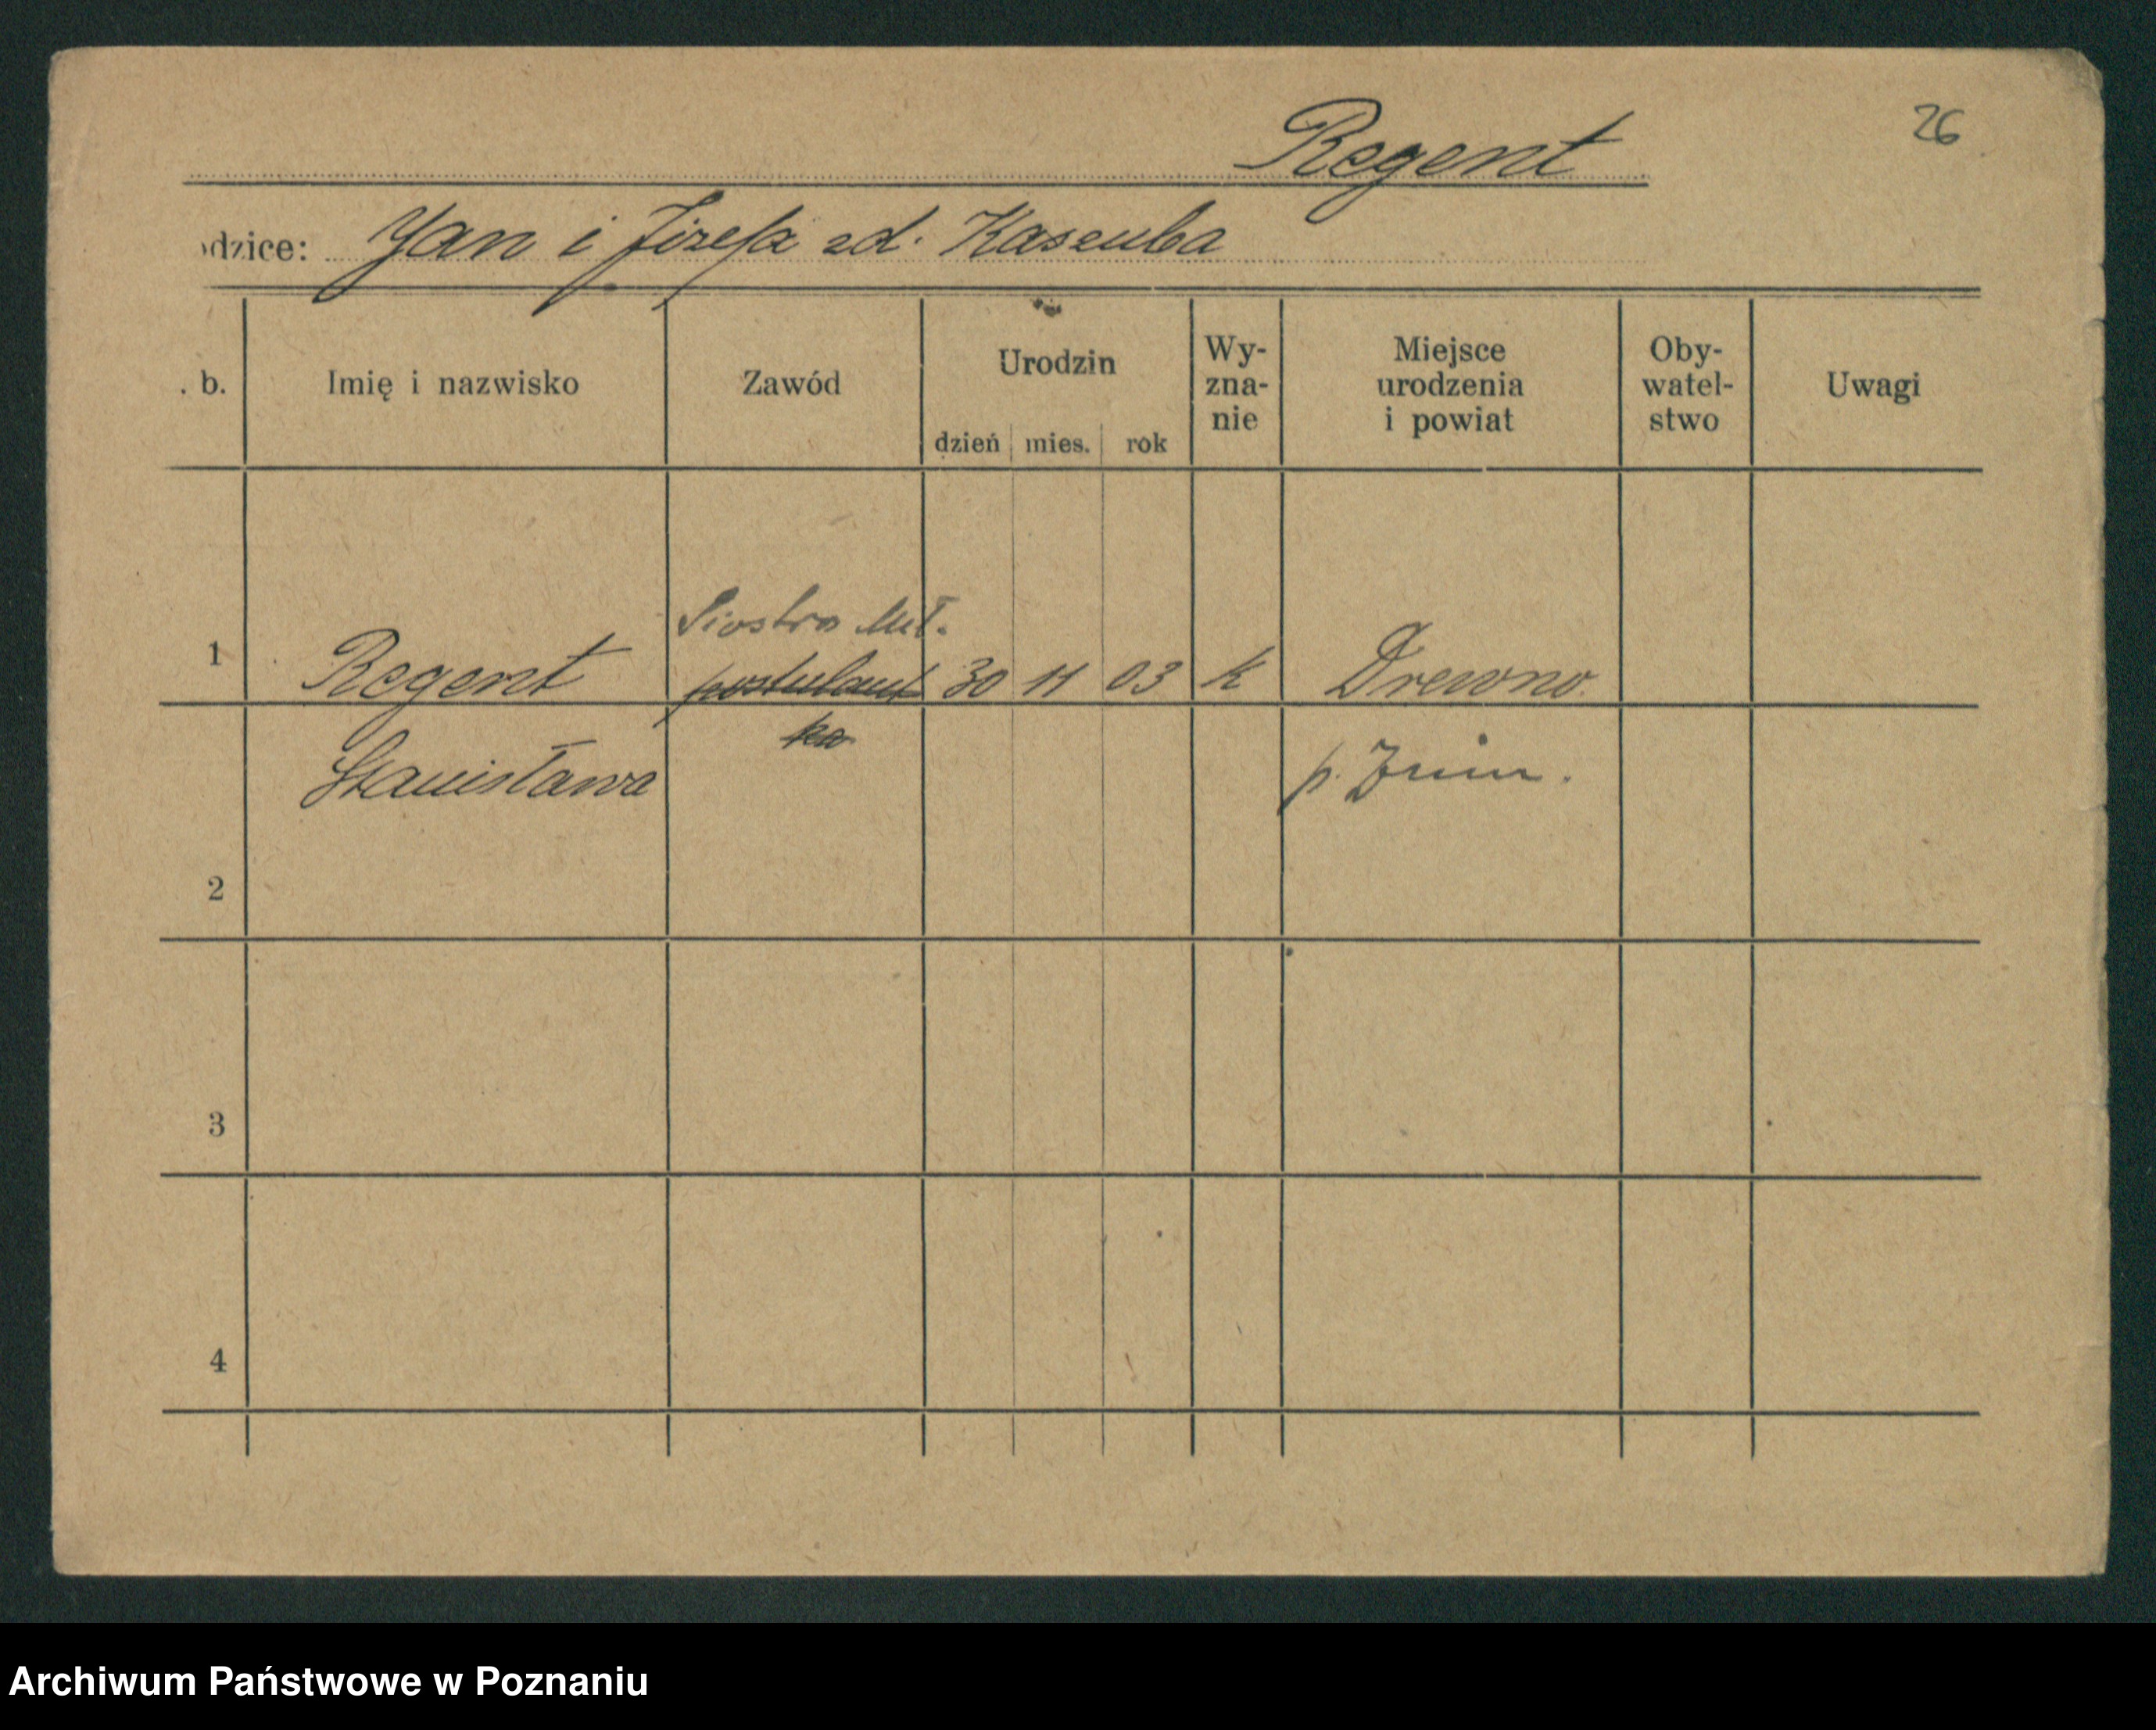 26
Regent
odzice: Jan i Józefa zd. Kaszuba
. b.
Imię i nazwisko
Zawód
Urodzin
dzień mies. rok
Wy-
zna-
nie
Miejsce
urodzenia
i powiat
Oby-
watel-
stwo
Uwagi
1
Regent
Stanisława
Siostra Mił.
postulant
ka
30 11 03
k
Drewno
p. Żnin.
2
3
4
Archiwum Państwowe w Poznaniu